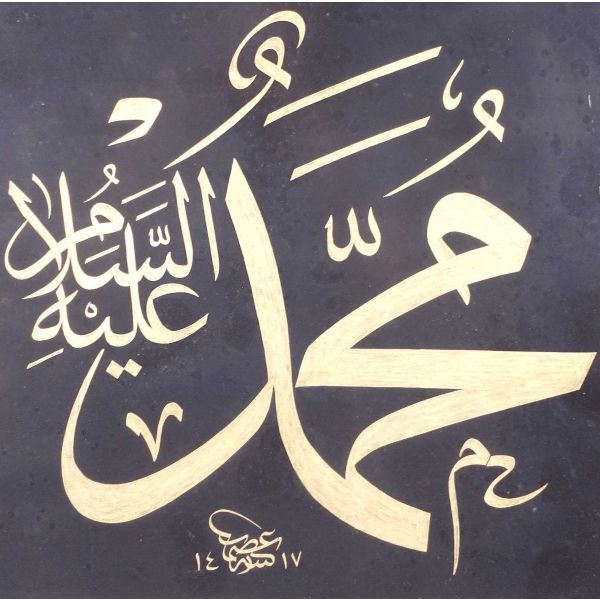 مُحَمَّدُ
عليْهِ السَّلَامُ
ح م
١٤١٧